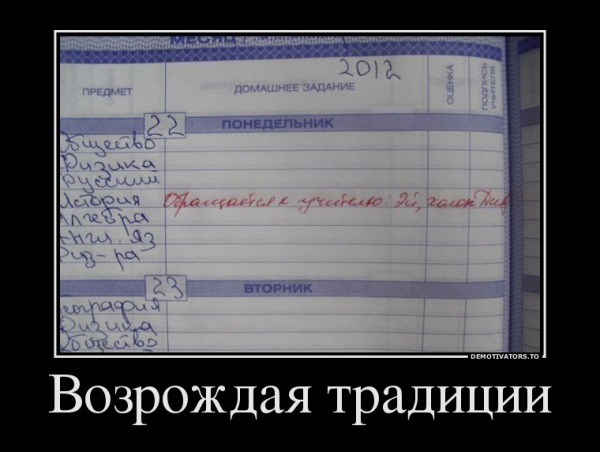 МЕСЯЦ
2012
ПРЕДМЕТ ДОМАШНЕЕ ЗАДАНИЕ ОЦЕНКА ПОДПИСЬ УЧИТЕЛЯ
22 ПОНЕДЕЛЬНИК
Общество
Физика
Русский
История Обращается к учителю: Эй, холоп
Алгебра
Англ. яз
Физ-ра
23 ВТОРНИК
География
Физика
Общество
DEMOTIVATORS.TO
Возрождая традиции